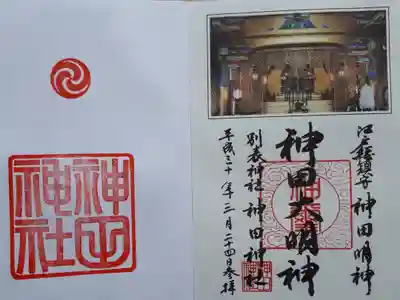 江戸総鎮守 神田明神
神田大明神
別表神社 神田神社
平成三十年三月二十四日参拝
神田
神社